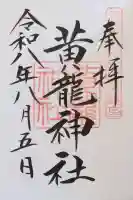 奉拝
黄龍神社
令和八年八月五日